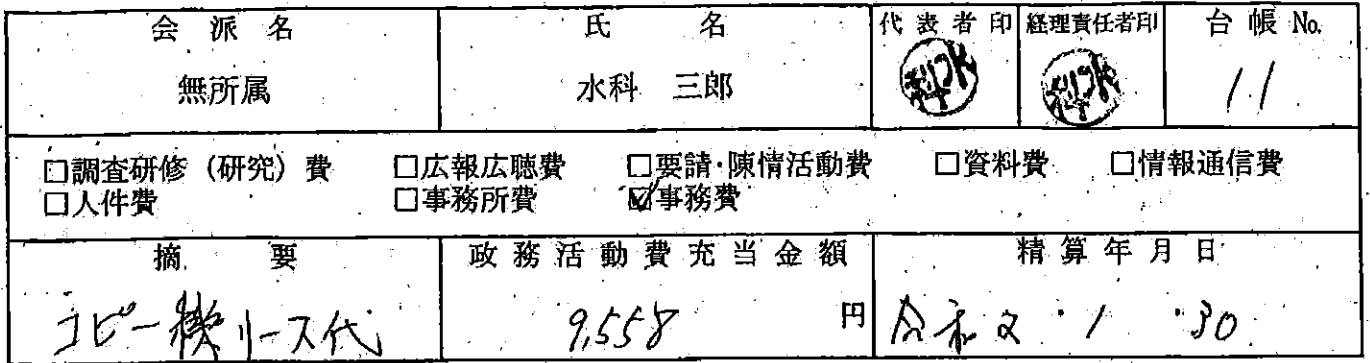 会派名 氏名 代表者印 経理責任者印 台帳No.
無所属 水科 三郎 11
□調査研修(研究)費 □広報広聴費 □要請・陳情活動費 □資料費 □情報通信費
□人件費 □事務所費 ☑事務費
摘要 政務活動費充当金額 精算年月日
コピー機リース代 9,558円 令和2・1・30